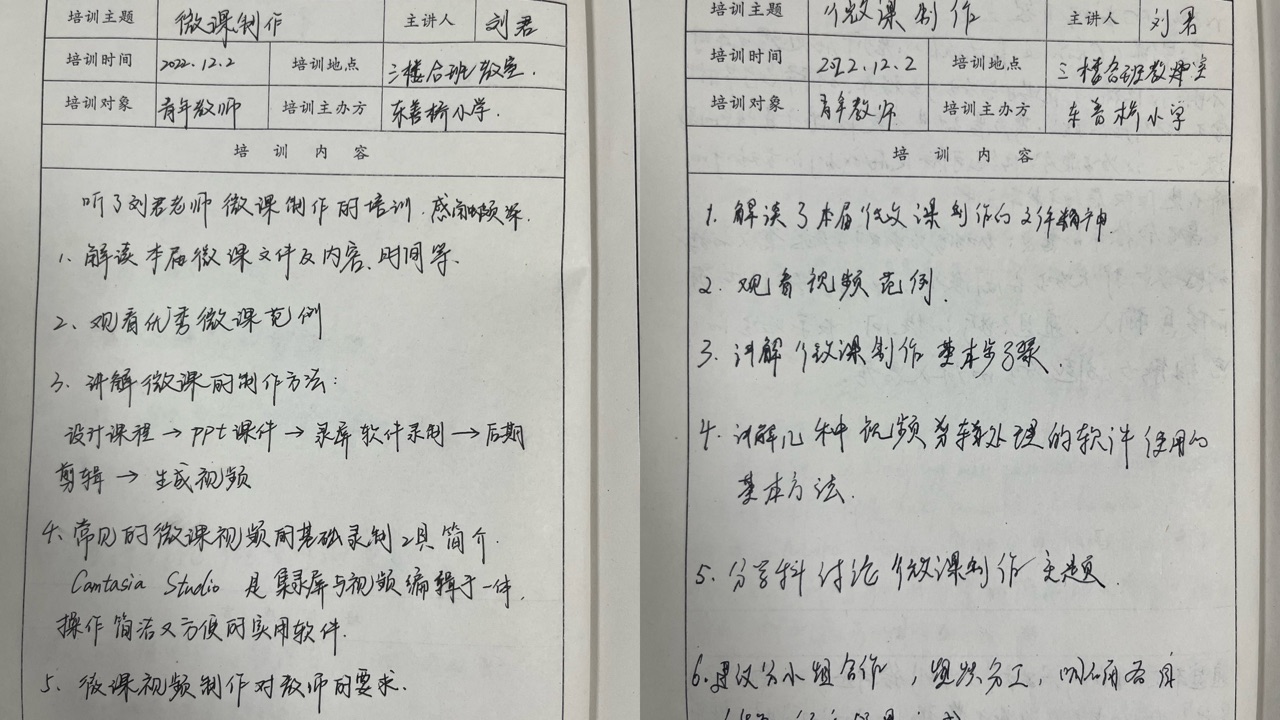 培训主题 微课制作 主讲人 刘君
培训时间 2022.12.2 培训地点 三楼合班教室.
培训对象 青年教师 培训主办方 东善桥小学.
培训内容
听了刘君老师微课制作的培训.感闻颇深.
1、解读本届微课文件及内容、时间等.
2、观看优秀微课范例
3、讲解微课的制作方法:
设计课程→ppt课件→录屏软件录制→后期
剪辑→生成视频
4、常见的微课视频的基础录制工具简介.
Camtasia Studio 是集录屏与视频编辑于一体,
操作简洁又方便的实用软件.
5、微课视频制作对教师的要求.
培训主题 微课制作 主讲人 刘君
培训时间 2022.12.2 培训地点 三楼合班教室
培训对象 青年教师 培训主办方 东善桥小学
培训内容
1.解读了本届微课制作的文件精神
2.观看视频范例.
3.讲解微课制作基本步骤.
4.讲解几种视频剪辑处理的软件使用的
基本方法.
5.分学科讨论微课制作主题.
6.建议分小组合作,组织分工,明确各自